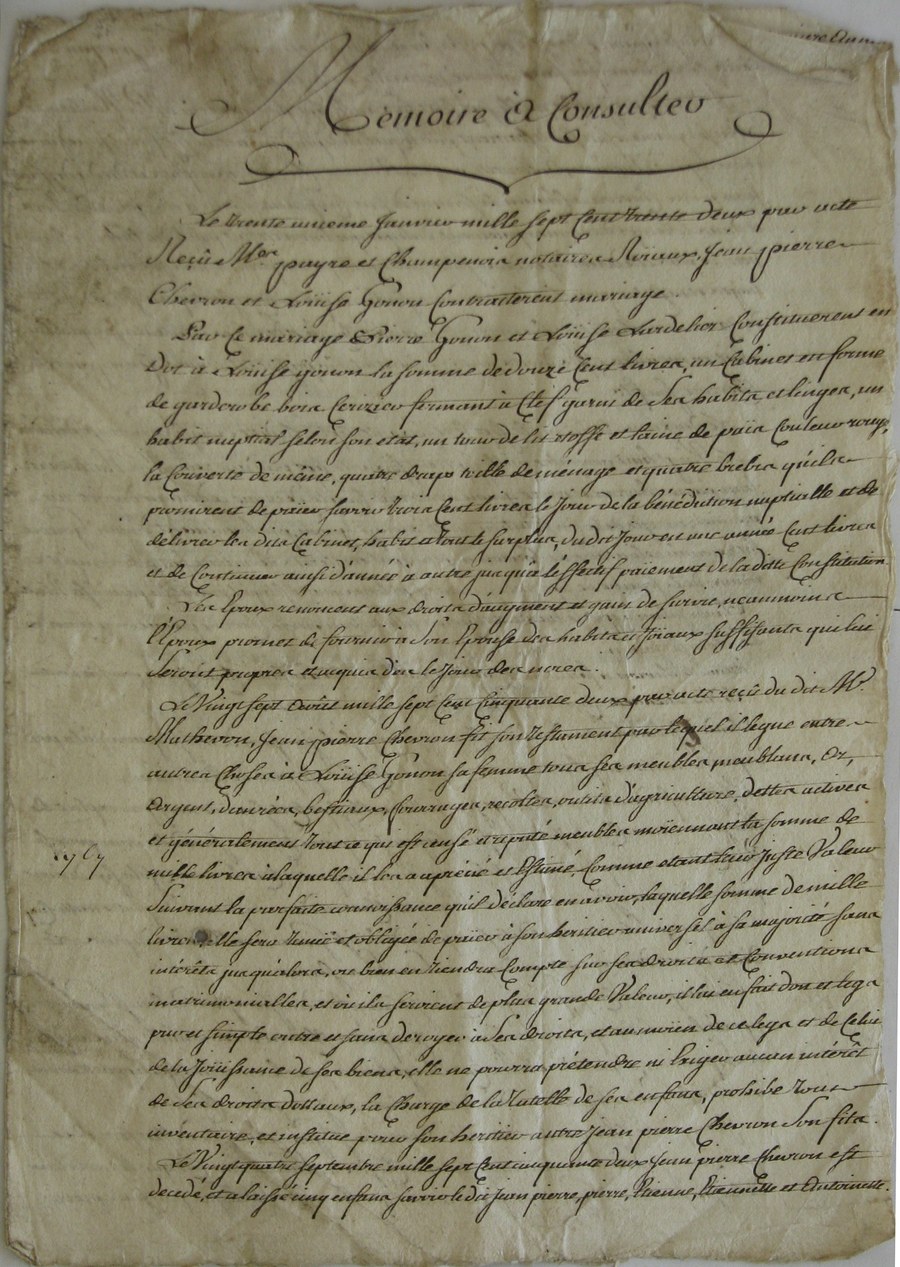 Mémoire à Consulter
Le trente unieme Janvier mille sept Cent trente deux par acte
Reçû Mes. payre et Champenois notaires Roïaux, Jean pierre
Chevron et Loüise Gonon Contracterent mariage.
Par Ce mariage Pierre Gonon et Loüise Lardelier Constituerent en
Dot à Loüise gonon la somme de douze Cent livres, un Cabinet en forme
de garderobe bois Cerizier fermant à Clef garni de Ses habits et linges, un
habit nuptial selon son etat, un tour de lit etoffe et laine de païs Couleur rouge,
la Couverte de même, quatre draps toille de ménage et quatre brebis qu'ils
promirent de païer savoir trois Cent livres le Jour de la bénédiction nuptialle et de
délivrer les dits Cabinet, habit et tout le surplus, du dit Jour en une année Cent livres
et de Continuer ainsi d'année à autre jusqu'à l'effectif paiement de la ditte Constitution
Les Epoux renoncent aux droits d'augment et gain de survie, neanmoins
l'Epoux promet de fournir à Son Epouse des habits et Joïaux suffisants qui lui
seront propres et acquis dès le Jour des nôces.
Le Vingt sept Août mille sept Cent Cinquante deux par acte reçû du dit Me.
Matheron, Jean pierre Chevron fit son testament par lequel il legue entre
autres Choses à Loüise Gonon sa femme tous ses meubles meublans, Or,
Argent, danrées, bestiaux, fourrages, recoltes, outils d'agriculture, dettes actives
et généralement tout ce qui est censé et reputé meubles moïennant la somme de
mille livres à laquelle il les a apretié et Estimé Comme etant leur Juste Valeur
Suivant la parfaite connoissance qu'il déclare en avoir, laquelle somme de mille
livres elle sera tenüe et obligée de païer à son heritier universel à sa majorité sans
intérêts jusqu'alors, ou bien en tiendra Compte sur ses droits et Conventions
matrimonialles, et où ils seroient de plus grande Valeur, il lui en fait don et legs
pur et simple outre et sans deroger à Ses droits, et au moïen de ce legs et de Celui
de la Joüissance de ses biens, elle ne pourra prétendre ni Exiger aucun intérêt
de Ses droits dottaux, la Charge de la tutelle de ses enfans, prohibe tout
inventaire, et institue pour son heritier autre Jean pierre Chevron Son fils.
Le Vingt quatre septembre mille sept Cent cinquante deux Jean pierre Chevron est
decedé, et a laissé cinq enfans savoir le dit Jean pierre, pierre, Etienne, Etiennette et Antoinette.